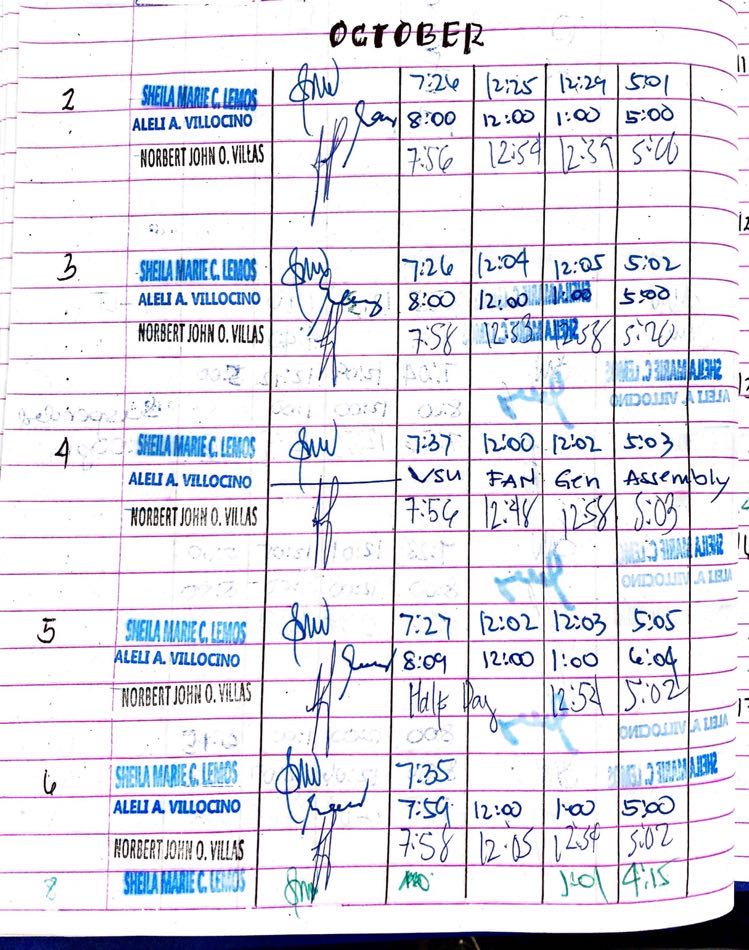 OCTOBER
2 SHEILA MARIE C. LEMOS 7:26 12:25 12:29 5:01
ALELI A. VILLOCINO 8:00 12:00 1:00 5:00
NORBERT JOHN O. VILLAS 7:56 12:54 12:59 5:00
3 SHEILA MARIE C. LEMOS 7:26 12:04 12:05 5:02
ALELI A. VILLOCINO 8:00 12:00 1:00 5:00
NORBERT JOHN O. VILLAS 7:58 12:58 5:20
4 SHEILA MARIE C. LEMOS 7:37 12:00 12:02 5:03
ALELI A. VILLOCINO VSU FAN Gen Assembly
NORBERT JOHN O. VILLAS 7:56 12:48 12:58 5:03
5 SHEILA MARIE C. LEMOS 7:27 12:02 12:03 5:05
ALELI A. VILLOCINO 8:09 12:00 1:00 6:04
NORBERT JOHN O. VILLAS Half Day 12:52 5:02
6 SHEILA MARIE C. LEMOS 7:35
ALELI A. VILLOCINO 7:59 12:00 1:00 5:00
NORBERT JOHN O. VILLAS 7:58 12:05 12:54 5:02
8 SHEILA MARIE C. LEMOS 1:01 4:15